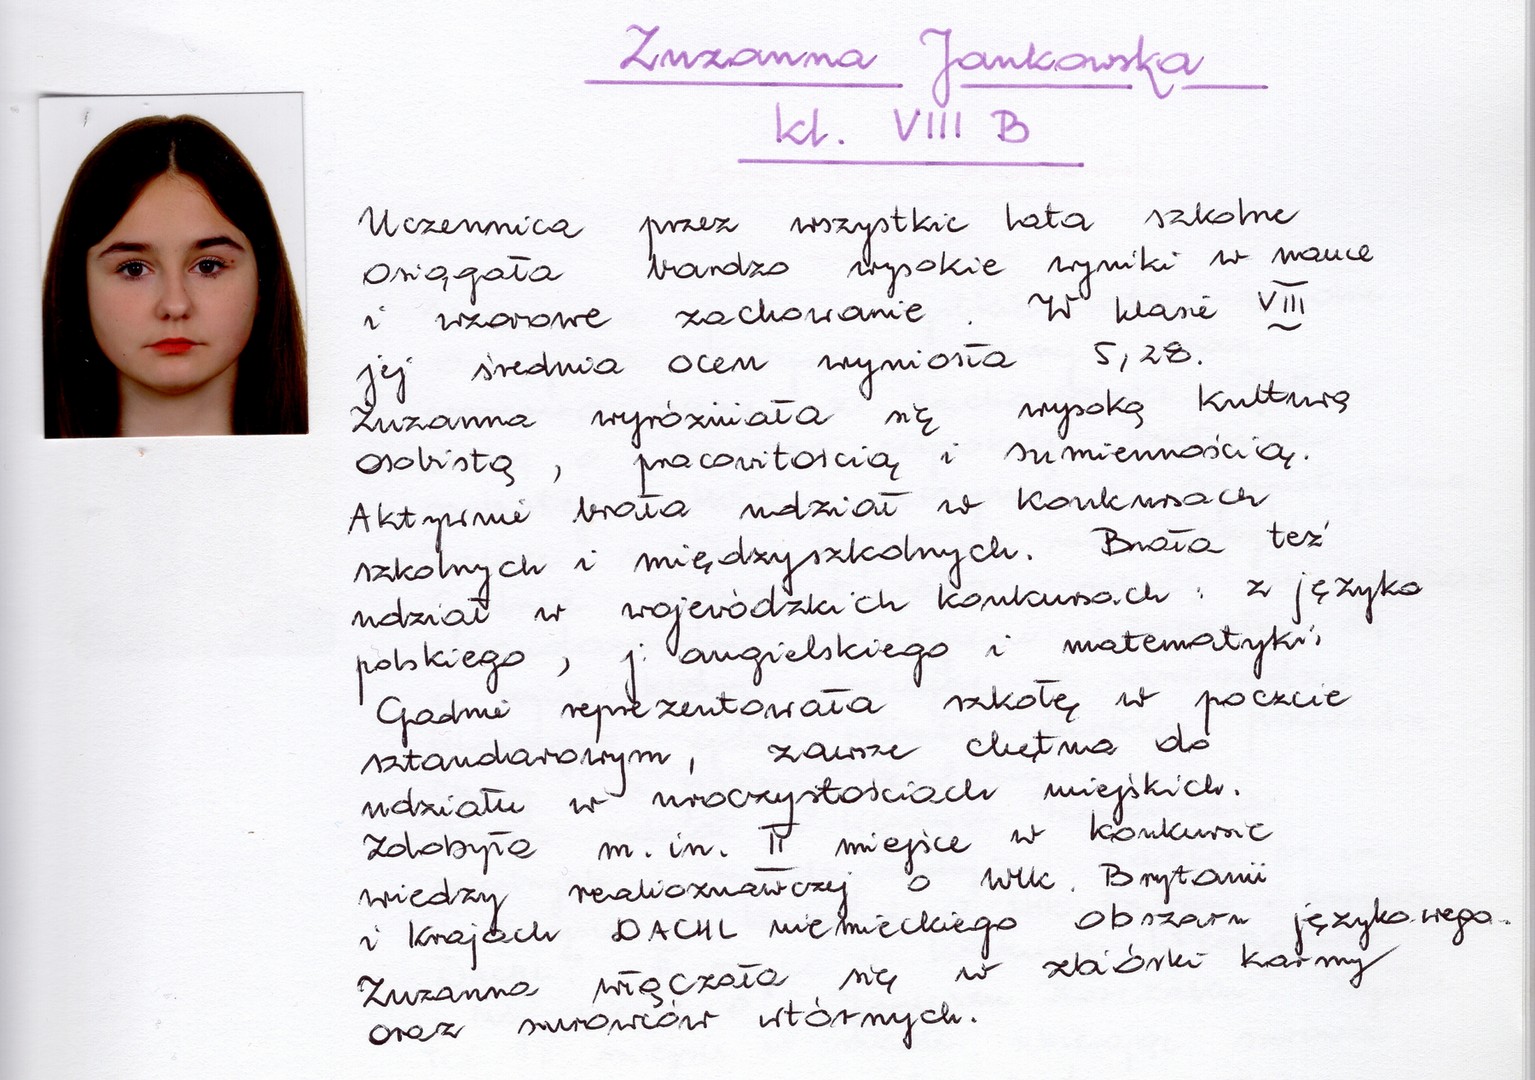 Zuzanna Jankowska
kl. VIII B
Uczennica przez wszystkie lata szkolne
osiągała bardzo wysokie wyniki w nauce
i wzorowe zachowanie. W klasie VIII
jej średnia ocen wyniosła 5,28.
Zuzanna wyróżniała się wysoką kulturą
osobistą, pracowitością i sumiennością.
Aktywnie brała udział w konkursach
szkolnych i międzyszkolnych. Brała też
udział w wojewódzkich konkursach: z języka
polskiego, j. angielskiego i matematyki.
Godnie reprezentowała szkołę w poczcie
sztandarowym, zawsze chętna do
udziału w uroczystościach miejskich.
Zdobyła m. in. II miejsce w konkursie
wiedzy realioznawczej o Wlk. Brytanii
i krajach DACHL niemieckiego obszaru językowego.
Zuzanna włączała się w zbiórki karmy
oraz surowców wtórnych.